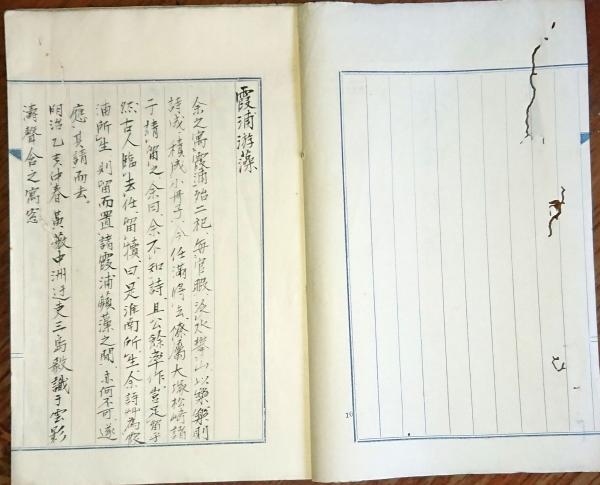 霞浦游藻
余之寓霞浦殆二祀每官暇泛水攀山以樂樂則
詩成積成小冊子今任滿將去僚属大塚松崎諸
子請留之余曰余不知詩且公餘率作豈足留乎
然古人臨去任留犢曰是淮南所生余詩艸為霞
浦所生則留而置諸霞浦蘋藻之間亦何不可遂
應其請而去。
明治乙亥中春黃薇中洲迂吏三島毅識于雲影
濤聲舍之寓窓
10